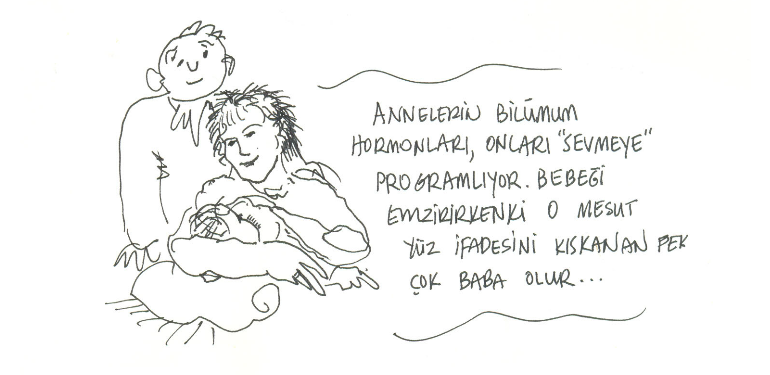 ANNELERİN BİLÜMUM
HORMONLARI, ONLARI "SEVMEYE"
PROGRAMLIYOR. BEBEĞİ
EMZİRİRKENKİ O MESUT
YÜZ İFADESİNİ KISKANAN PEK
ÇOK BABA OLUR...